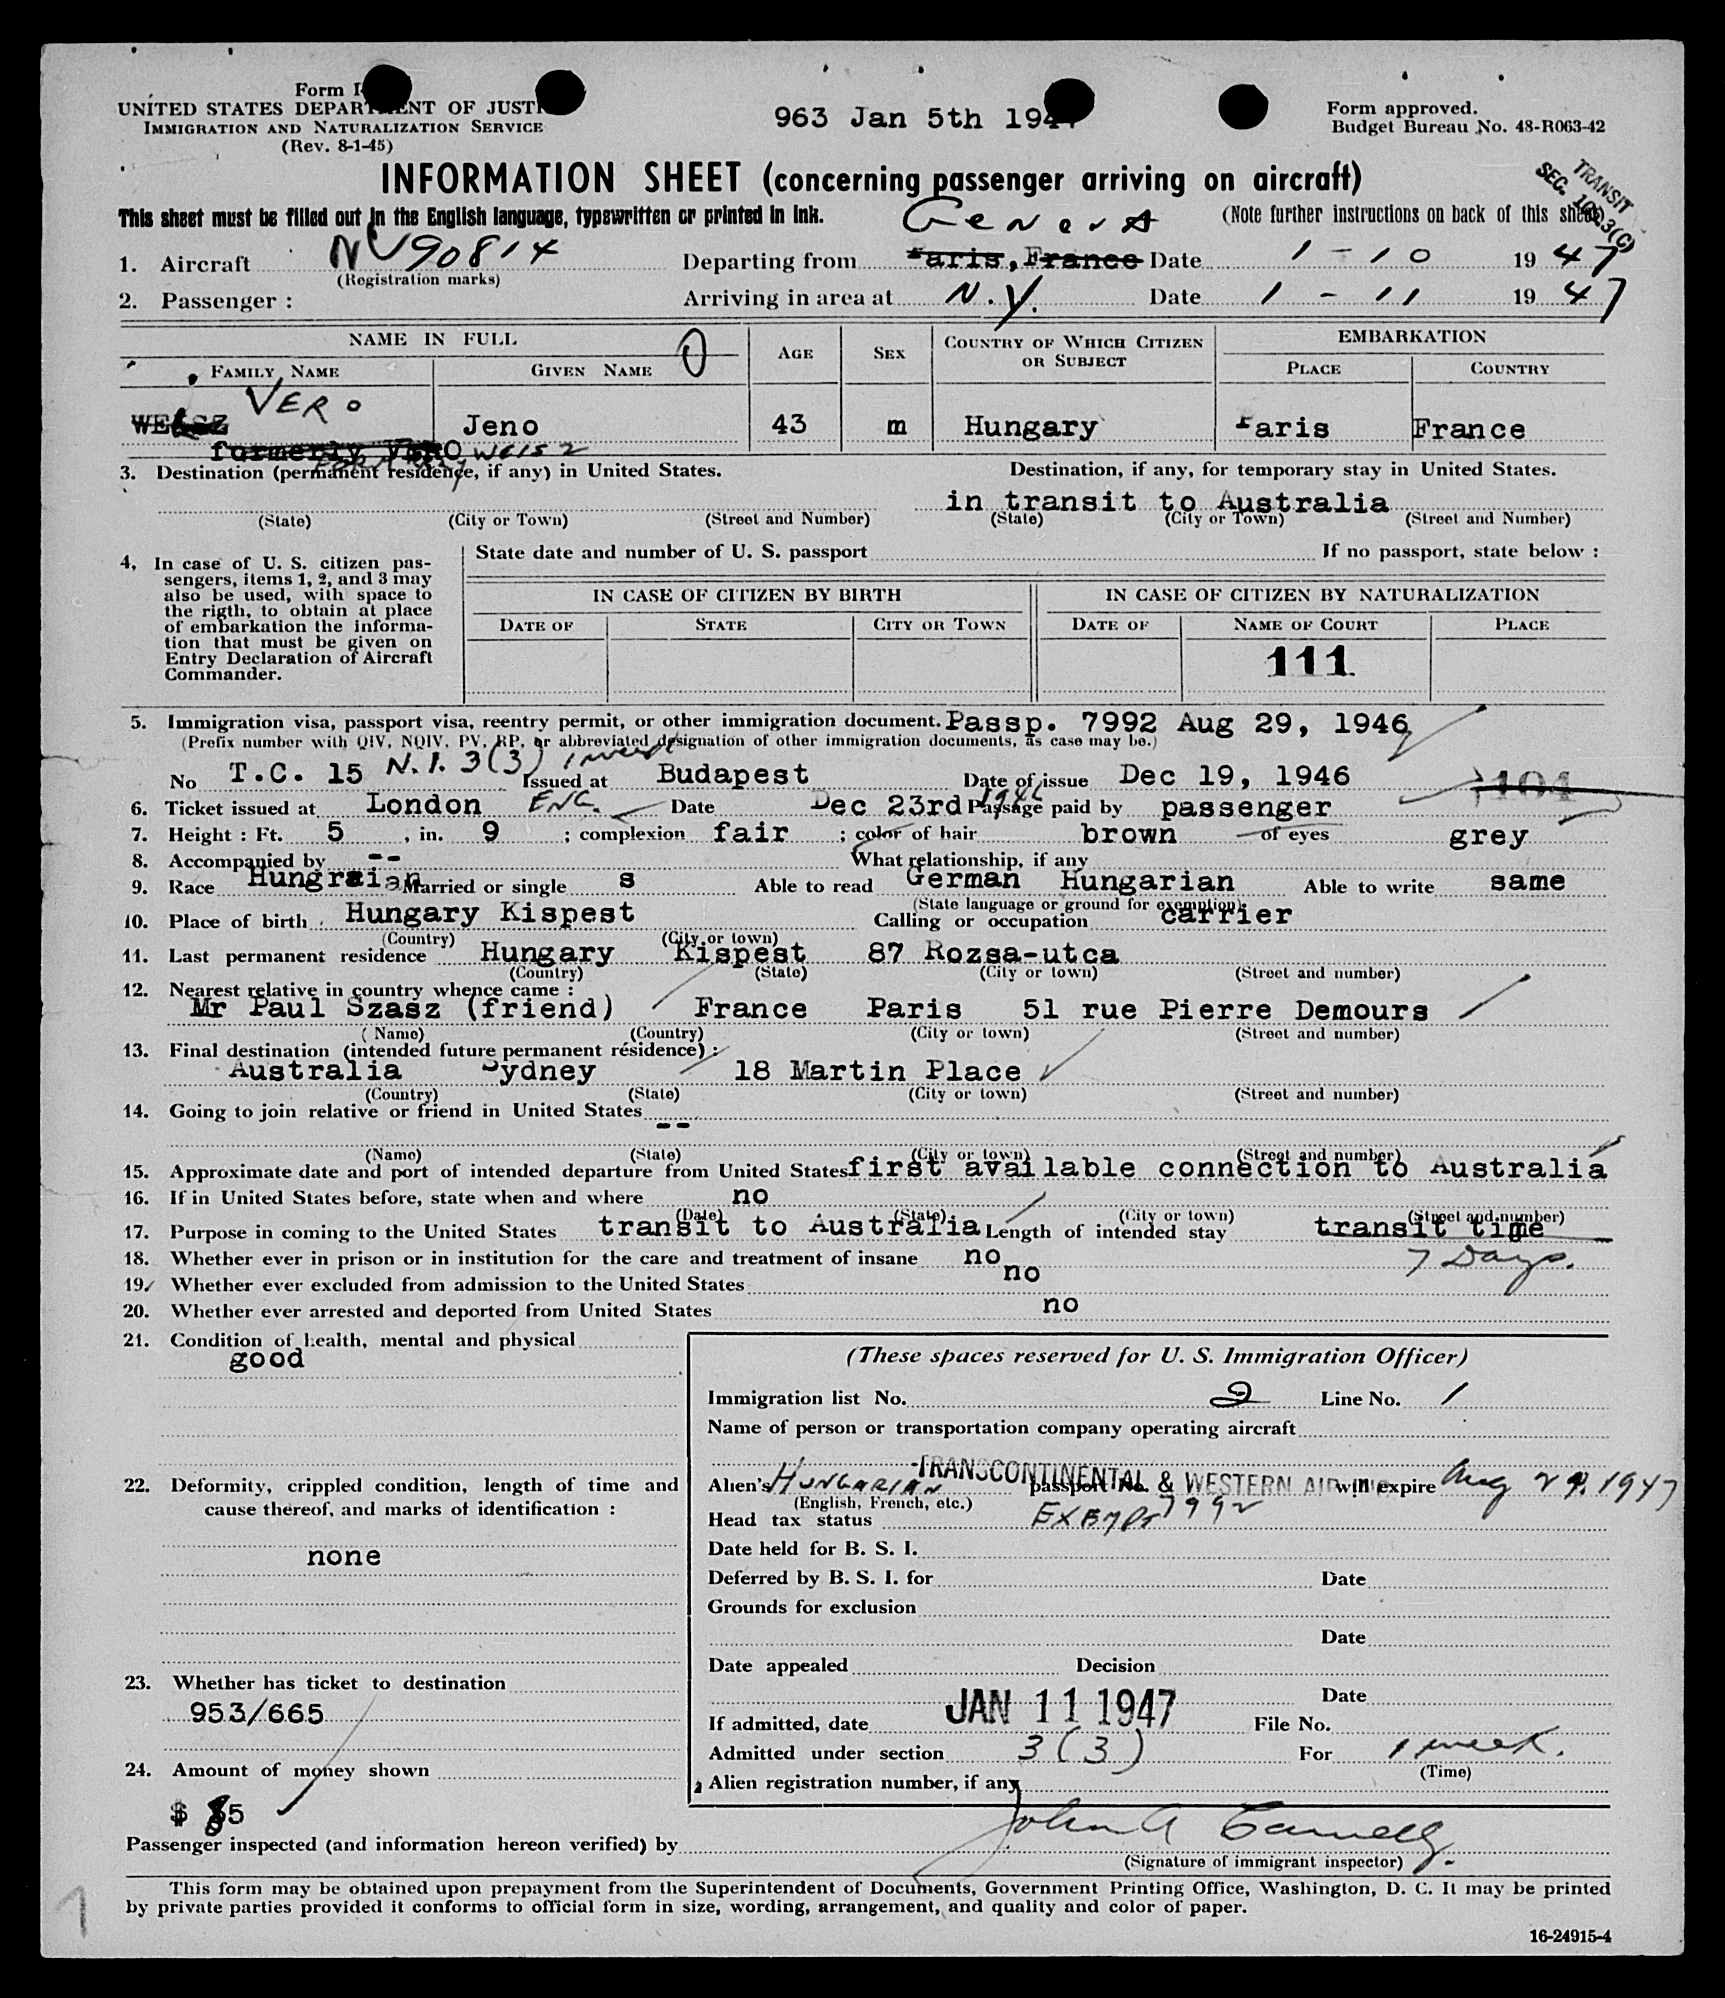 Form I-
UNITED STATES DEPARTMENT OF JUSTICE
IMMIGRATION AND NATURALIZATION SERVICE
(Rev. 8-1-45)
963 Jan 5th 1947
Form approved.
Budget Bureau No. 48-R063-42
INFORMATION SHEET (concerning passenger arriving on aircraft)
TRANSIT
SEC.
This sheet must be filled out in the English language, typewritten or printed in ink.
(Note further instructions on back of this sheet)
Geneva
1. Aircraft NC 90814 Departing from Paris, France Date 1-10 1947
(Registration marks)
2. Passenger : Arriving in area at N.Y. Date 1-11 1947
NAME IN FULL AGE SEX COUNTRY OF WHICH CITIZEN OR SUBJECT EMBARKATION
FAMILY NAME GIVEN NAME PLACE COUNTRY
VERO
WEISZ Jeno 43 m Hungary Paris France
formerly VERO
FORMERLY WEISZ
3. Destination (permanent residence, if any) in United States. Destination, if any, for temporary stay in United States.
in transit to Australia
(State) (City or Town) (Street and Number) (State) (City or Town) (Street and Number)
4, In case of U. S. citizen passengers, items 1, 2, and 3 may
also be used, with space to
the rigth, to obtain at place
of embarkation the informa-
tion that must be given on
Entry Declaration of Aircraft
Commander.
State date and number of U. S. passport If no passport, state below :
IN CASE OF CITIZEN BY BIRTH IN CASE OF CITIZEN BY NATURALIZATION
DATE OF STATE CITY OR TOWN DATE OF NAME OF COURT PLACE
111
5. Immigration visa, passport visa, reentry permit, or other immigration document. Passp. 7992 Aug 29, 1946
(Prefix number with QIV, NQIV, PV, RP, or abbreviated designation of other immigration documents, as case may be.)
No T.C. 15 N.I. 3(3) 1 week Issued at Budapest Date of issue Dec 19, 1946 104
6. Ticket issued at London ENG. Date Dec 23rd 1946 Passage paid by passenger
7. Height : Ft. 5 , in. 9 ; complexion fair ; color of hair brown of eyes grey
8. Accompanied by -- What relationship, if any
9. Race Hungraian Married or single s Able to read German Hungarian Able to write same
(State language or ground for exemption)
10. Place of birth Hungary Kispest Calling or occupation carrier
(Country) (City or town)
11. Last permanent residence Hungary Kispest 87 Rozsa-utca
(Country) (State) (City or town) (Street and number)
12. Nearest relative in country whence came :
Mr Paul Szasz (friend) France Paris 51 rue Pierre Demours
(Name) (Country) (City or town) (Street and number)
13. Final destination (intended future permanent résidence) :
Australia Sydney 18 Martin Place
(Country) (State) (City or town) (Street and number)
14. Going to join relative or friend in United States
--
(Name) (State) (City or town) (Street and number)
15. Approximate date and port of intended departure from United States first available connection to Australia
16. If in United States before, state when and where no
(Date) (State) (City or town) (Street and number)
17. Purpose in coming to the United States transit to Australia Length of intended stay transit time
18. Whether ever in prison or in institution for the care and treatment of insane no 7 Days.
19. Whether ever excluded from admission to the United States no
20. Whether ever arrested and deported from United States no
21. Condition of health, mental and physical
good
(These spaces reserved for U. S. Immigration Officer)
Immigration list No. 2 Line No. 1
Name of person or transportation company operating aircraft
TRANSCONTINENTAL & WESTERN AIR INC.
22. Deformity, crippled condition, length of time and
cause thereof, and marks of identification :
none
Alien's HUNGARIAN passport No. 7992 will expire Aug 29, 1947
(English, French, etc.)
Head tax status EXEMPT
Date held for B. S. I.
Deferred by B. S. I. for Date
Grounds for exclusion
Date
Date appealed Decision
Date
23. Whether has ticket to destination
953/665
If admitted, date JAN 11 1947 File No.
Admitted under section 3(3) For 1 week.
(Time)
Alien registration number, if any
24. Amount of money shown
$ 85
Passenger inspected (and information hereon verified) by John A
(Signature of immigrant inspector)
This form may be obtained upon prepayment from the Superintendent of Documents, Government Printing Office, Washington, D. C. It may be printed
by private parties provided it conforms to official form in size, wording, arrangement, and quality and color of paper.
16-24915-4
1